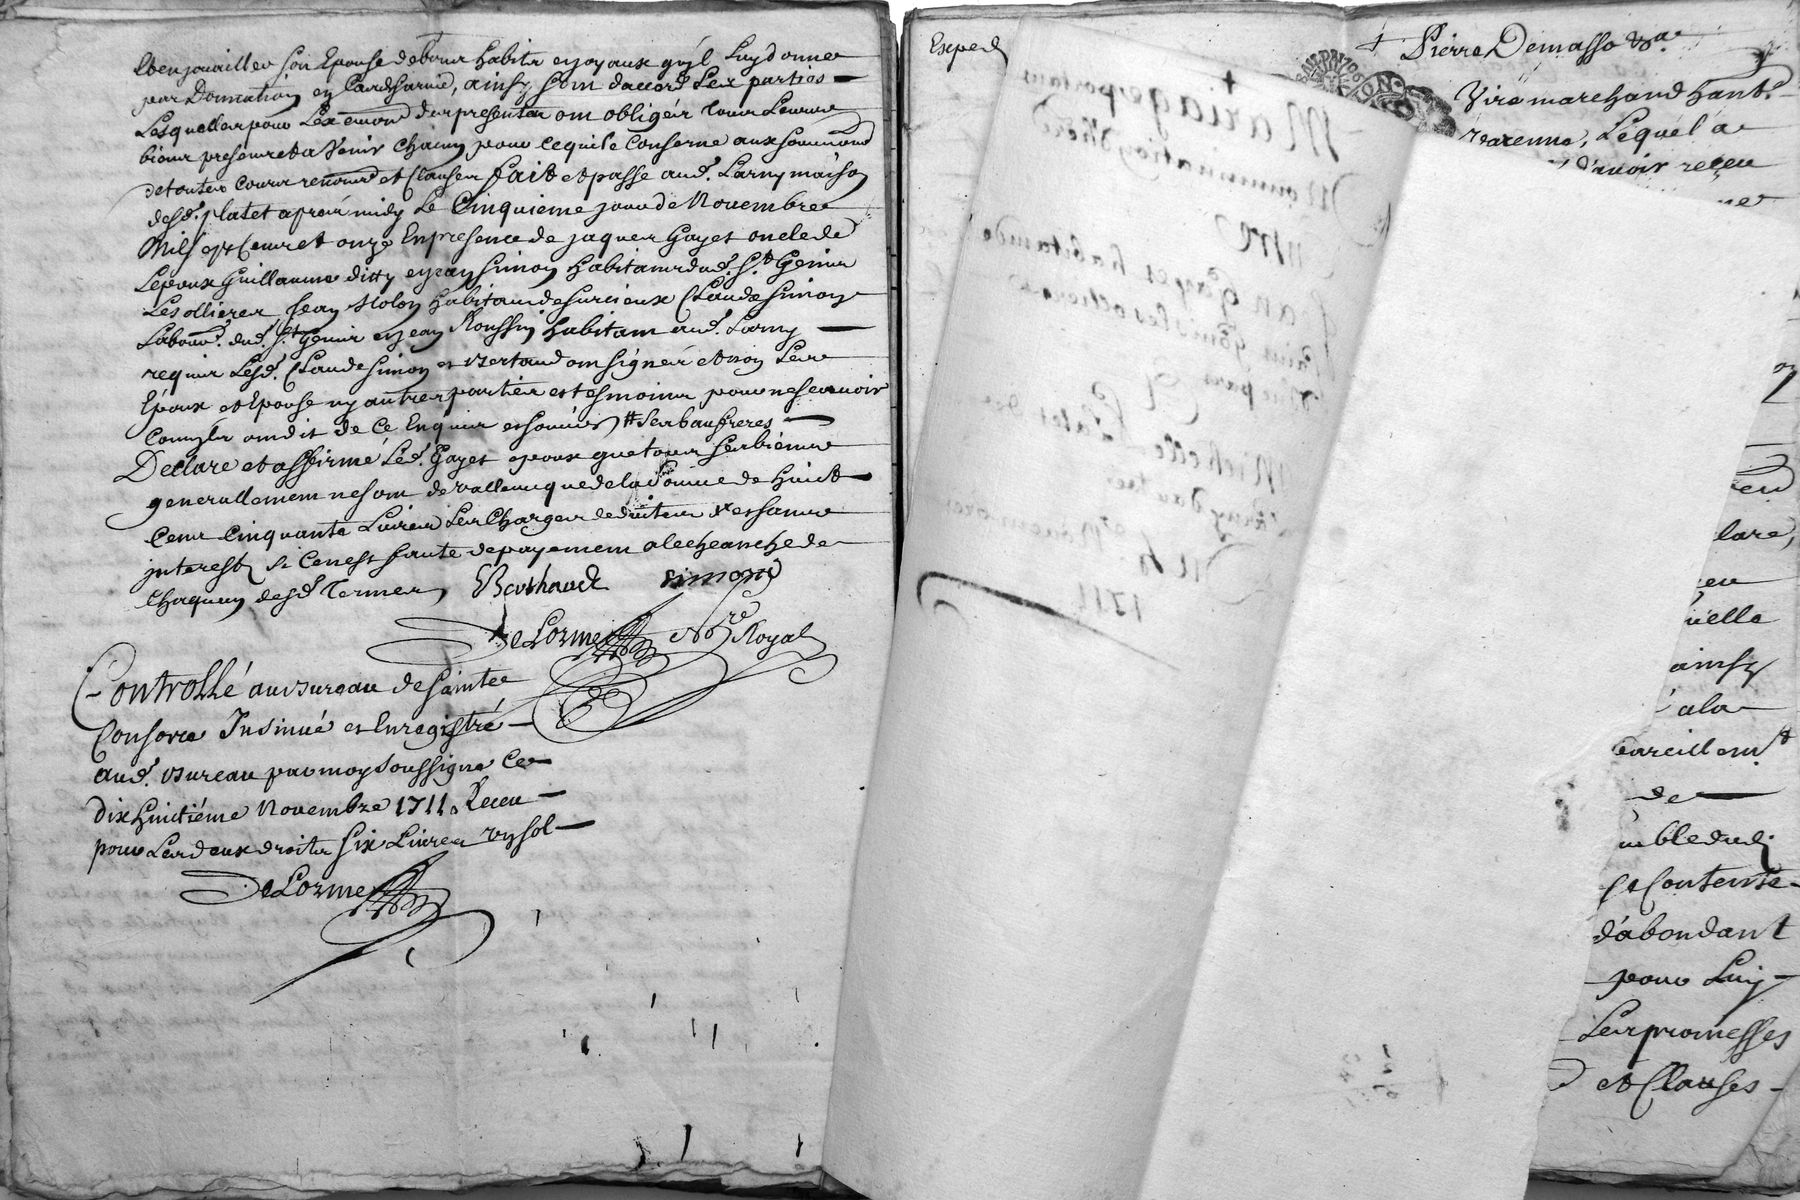 et enjouailler son Epouse de bons habits et joyaux qu'il luy donne
par Donnation en cas de survie, ainsy sont d'accord Les parties
Lesquelles pour L'execution des presentes ont obligés tous Leurs
biens presents et a Venir chacun pour ce qui le Conserne aux soumissions
de toutes cours renonces et Clauses fait et passé aud. Larny maison
desd. platet aprais midy Le Cinquieme jour de Novembre
Mil sept Cents et onze En presence de jaques Gayet oncle de
Lepoux Guillaume ditty et jean Simon habitants dud. St Genis
Les ollieres Jean Molon habitant de Surcieux Claude Simon
Labour. dud. St Genis et jean Roussin habitant aud. Larny
requis Lesd. Claude Simon et Bertaud ont signés et non Les
Epoux et Epouse ny autres parties et tesmoins pour ne scavoir
comm'ils ont dit de ce Enquis et sommés # Ses beaufreres
Declare et affirmé Led. Gayet epoux que tous ses biens
generallement ne sont de valleur que de la somme de huict
Cent Cinquante Livres Les Charges deduites et sans
interest si ce n'est faute de payement a lecheanche de
Chaqun desd. Termes Berthaud simond
De Lorme No.re Royal
Controllé au bureau de Sainte
Consorce Insinué et Enregistré
aud. bureau par moy soussigné Ce
dix huitiéme Novembre 1711. Receu
pour Les deux droits six Livres un sol
De Lorme
Exped
+
Mariage portant
Nommination d'here
Entre
Jean Gayet habitant de
Saint Genis les ollieres
D'une part
Et
Michelle Platet de
Larny d'autre
Du 5e Novembre
1711
+ Pierre Demasso
Vire marchand hant.
Varenne, Lequel a
d'avoir receu
lare,
uelle
ainsy
a la
pareillemt
de
mble dud.
se Contente
d'abondant
pour Luy
Les promesses
et Clauses